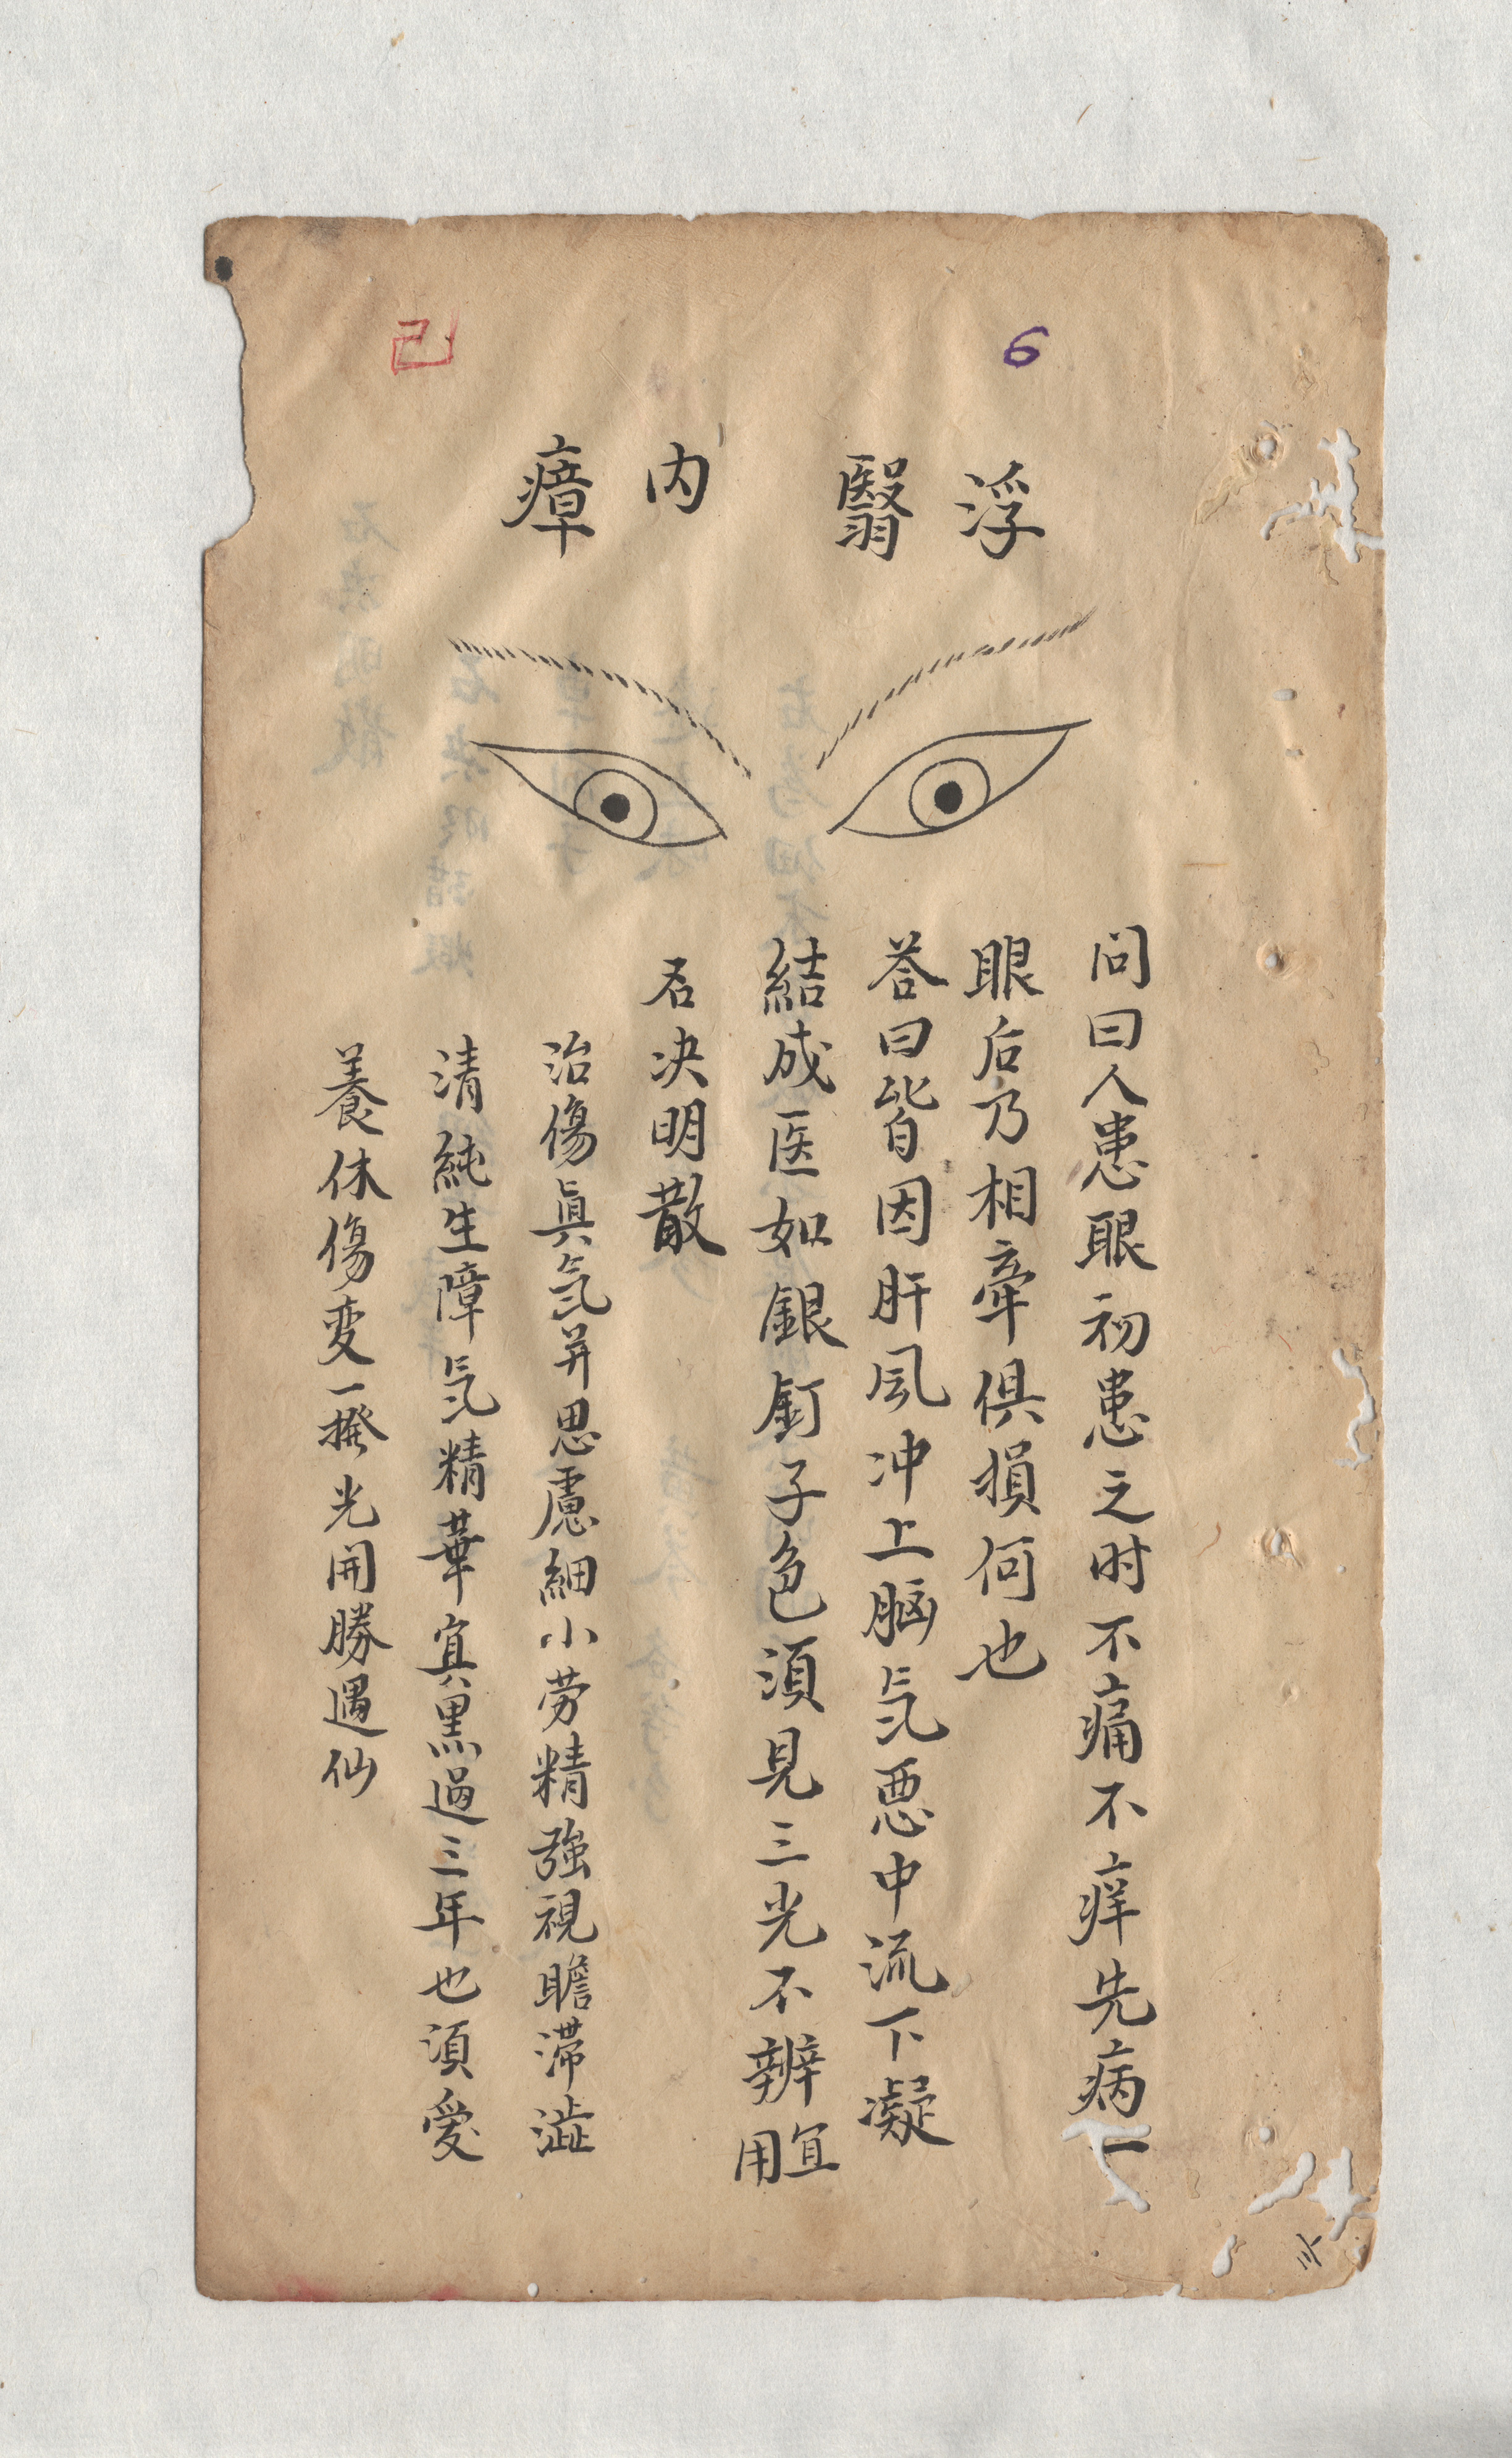 6
己
浮翳
内瘴
问曰人患眼初患之时不痛不痒先病一
眼后乃相牵俱損何也
荅曰皆因肝风冲上脑気恶中流下凝
結成医如銀釘子色須見三光不辨宜用
石决明散
治傷眞気并思慮細小劳精強視瞻滞澁
清純生障気精華眞黒過三年也須愛
養休傷変一撥光開勝遇仙